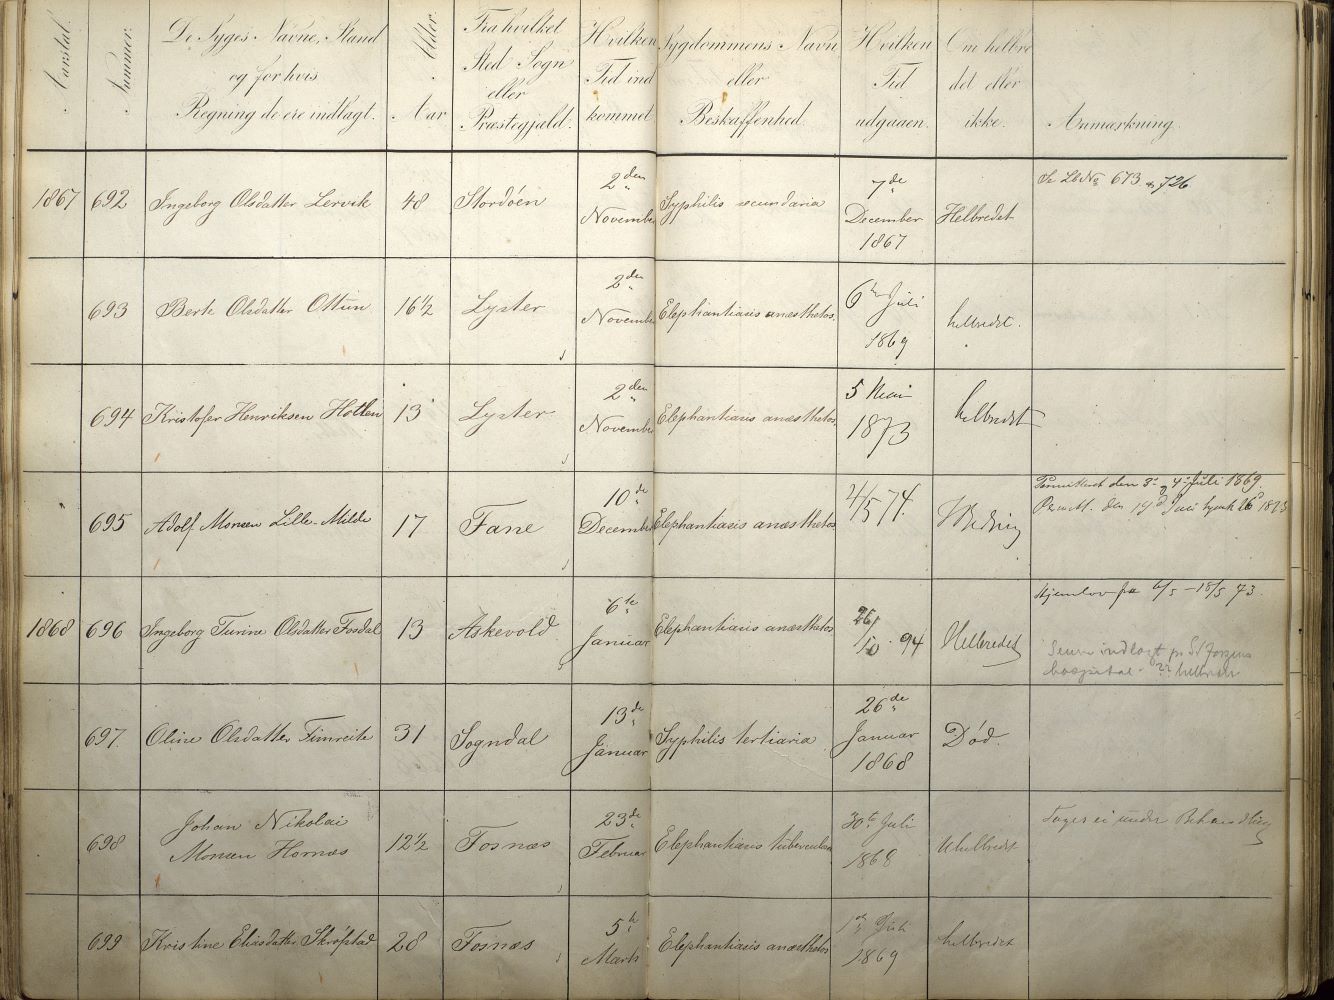 Aarstal.
Nummer.
De Syges Navne, Stand
og for hvis
Regning de ere indlagt.
Alder.
Aar
Fra hvilket
Sted Sogn
eller
Præstegjæld.
Hvilken
Tid ind
kommet
Sygdommens Navn
eller
Beskaffenhed.
Hvilken
Tid
udgaaen.
Om helbre
det eller
ikke.
Anmærkning.
1867 692 Ingeborg Olsdatter Lervik 48 Stordöen 2den November Syphilis secundaria 7de December 1867 Helbredet Se LbNo 673 & 726
693 Berte Olsdatter Ottun 16½ Lyster 2den November Elephantiasis anæsthetos. 6te Juli 1869 helbredet.
694 Kristofer Henriksen 13 Lyster 2den November Elephantiasis anæsthetos. 5 Mai 1873 helbredet
695 Adolf Monsen Lille-Milde 17 Fane 10de December Elephantiasis anæsthetos 4/5 74. Bedring
Permitteret den 3 4 Juli 1869.
Permitt. den 19d Juni 26d 1873
1868 696 Ingeborg Turine Olsdatter Fosdal 13 Askevold 6te Januar Elephantiasis anæsthetos 26/10 94 Helbredet
Hjemlov fra 6/5 - 18/5 73.
Senere indlagt pr St Jørgens
hospital helbredet
697. Oline Olsdatter Fimreite 31 Sogndal 13de Januar Syphilis tertiaria 26de Januar 1868 Död.
698 Johan Nikolai
Monsen Hornæs 12½ Fosnæs 23de Februar Elephantiasis tuberculosa 30te Juli 1868 Uhelbredet
Tages ei under Behandling
699 Kristine Eliasdatter Skröpstad 28 Fosnæs 5te Marts Elephantiasis anæsthetos 1ste Juli 1869 helbredet